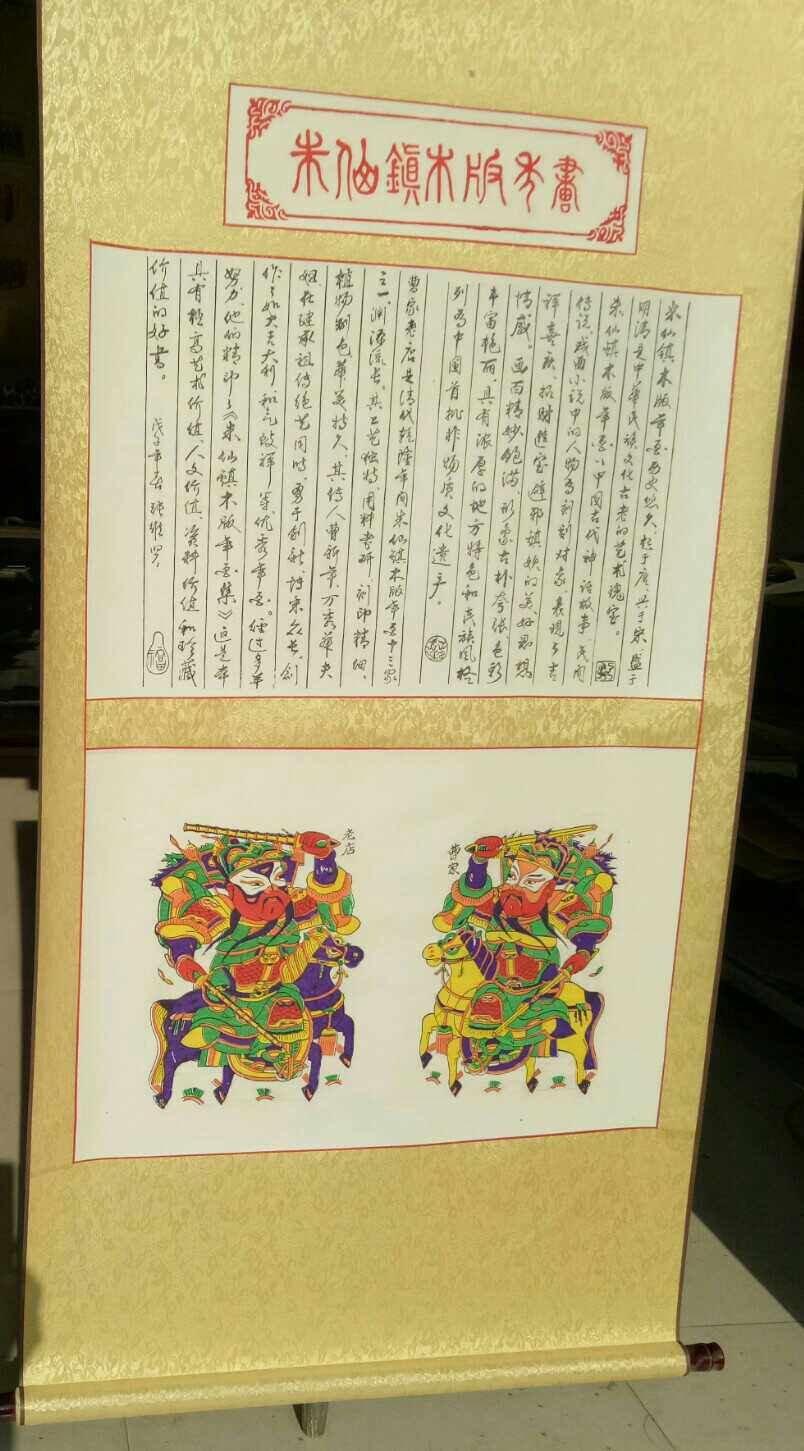 朱仙鎮木版年畫
朱仙镇木版年画历史悠久,起于唐、兴于宋、盛于
明清是中华民族文化古老的艺术瑰宝。
朱仙镇木版年画以中国古代神话故事、民间
传说、戏曲小说中的人物为刻划对象、表现了吉
祥喜庆、招财进宝避邪镇妖的美好思想
情感。画面精妙饱满、形象古朴夸张、色彩
丰富艳丽、具有浓厚的地方特色和民族风格
列为中国首批非物质文化遗产。
曹家老店是清代乾隆年间朱仙镇木版年画十三家
之一、渊源流长。其工艺独特、用料考研、刻印精细、
植物制色华美持久、其传人曹新年、万秀华夫
妇在继承祖传绝艺同时、勇于创新、博采众长、创
作了如大吉大利 和气致祥 等优秀年画。经过多年
努力、他们精印了《朱仙镇木版年画集》这是本
具有极高艺术价值、人文价值、资料价值和珍藏
价值的好书。
戊子年春
老店
曹家